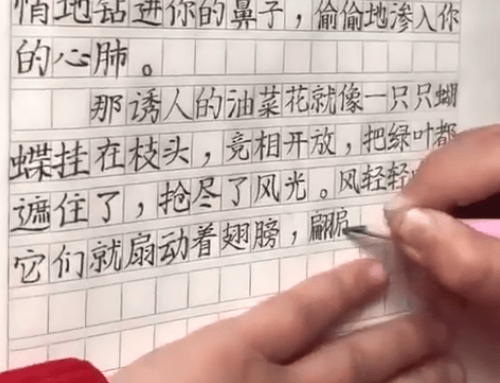 悄地钻进你的鼻子，偷偷地渗入你
的心肺。
那诱人的油菜花就像一只只蝴
蝶挂在枝头，竞相开放，把绿叶都
遮住了，抢尽了风光。风轻轻
它们就扇动着翅膀，翩